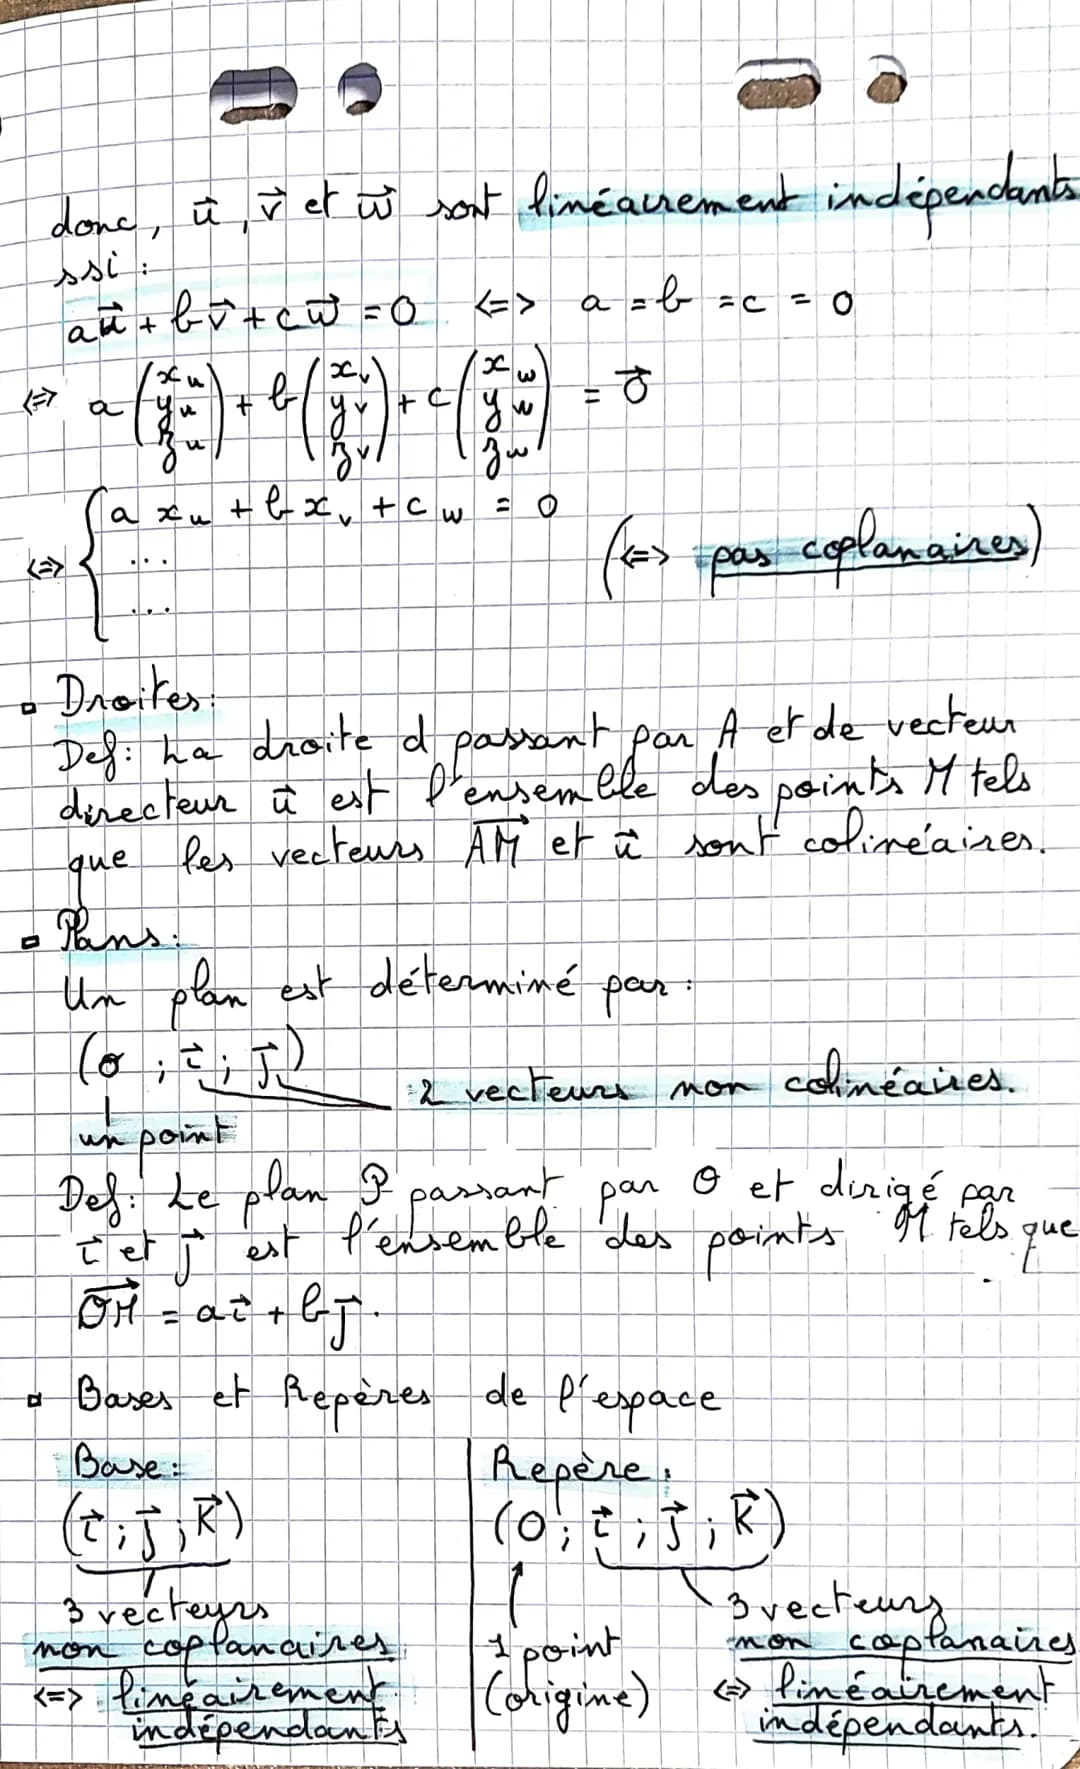 donc, u⃗, v⃗ et w⃗ sont linéairement indépendants
ssi :
au⃗ + bv⃗ + cw⃗ = 0 <=> a = b = c = 0
<=> a (x_u y_u z_u) + b (x_v y_v z_v) + c (x_w y_w z_w) = 0⃗
<=> { a x_u + b x_v + c w = 0
...
...
(<=> pas coplanaires)
Droites :
Def : La droite d passant par A et de vecteur
directeur u⃗ est l'ensemble des points M tels
que les vecteurs AM⃗ et u⃗ sont colinéaires.
Plans :
Un plan est déterminé par :
(O ; i⃗ ; j⃗)
2 vecteurs non colinéaires.
un point
Def : Le plan P passant par O et dirigé par
i⃗ et j⃗ est l'ensemble des points M tels que
OM⃗ = ai⃗ + bj⃗.
Bases et Repères de l'espace
Base :
(i⃗ ; j⃗ ; k⃗)
3 vecteurs
non coplanaires
<=> linéairement
indépendants
Repère :
(O ; i⃗ ; j⃗ ; k⃗)
1 point
(origine)
3 vecteurs
non coplanaires
<=> linéairement
indépendants.